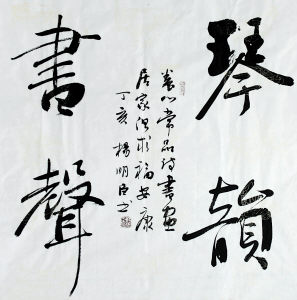 琴韻
書聲
養心常品詩書畫
居家但求福安康
丁亥 楊明臣書